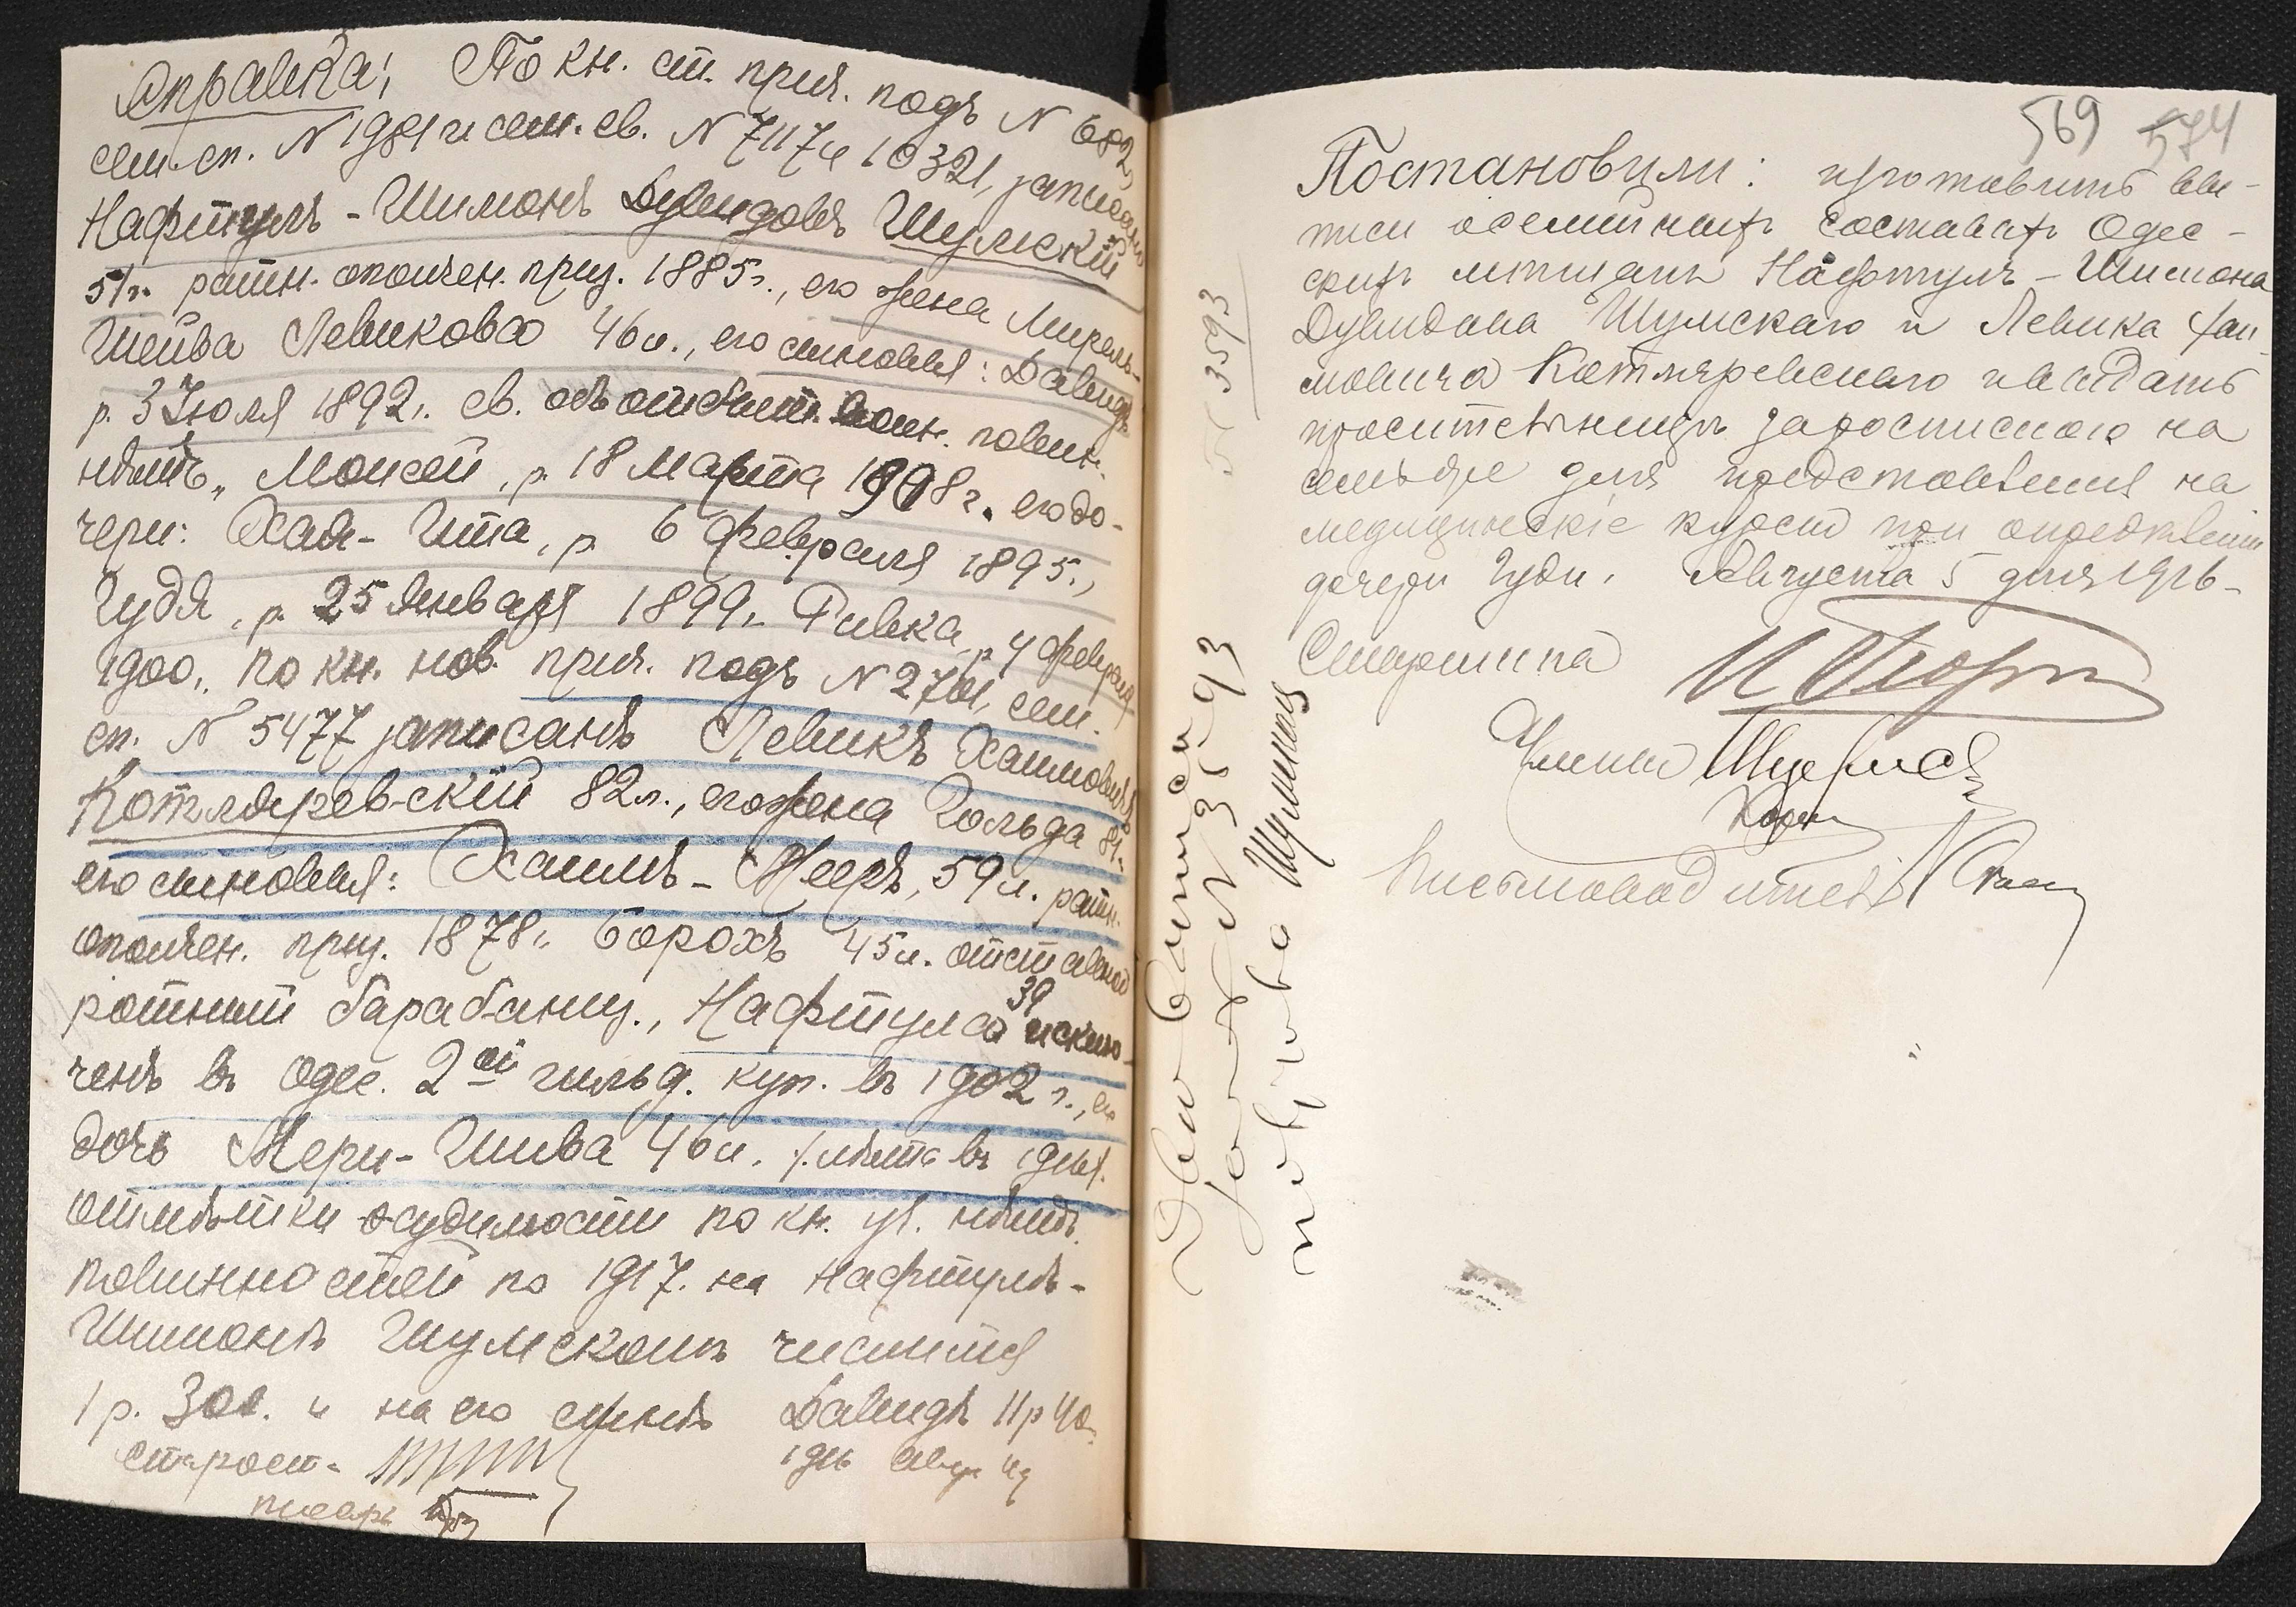 Справка: По кн. ст. прич. подъ N 682,
сем. сп. N 1981 и сем. св. N 7117 и 10321, записанъ
Нафтулъ-Шимонъ Дувидовъ Шумскій
51 г. ратн. ополчен. приз. 1885 г., его жена Мирель-
Шейва Левикова 46 л., его сыновья: Давидъ
р. 3 Июля 1892 г. св. объ отбыт. воин. повин.
нѣтъ, Моисей, р. 18 Марта 1908 г., его до-
чери: Хая-Ита, р. 6 февраля 1895 г.,
Гудя, р. 25 Января 1899 г. Ривка, р. 4 февраля
1900 г. по кн. нов. прич. подъ N 2701, сем.
сп. N 5477 записанъ Левикъ Хаимовичъ
Котляревскій 82 л., его жена Гольда 81 г.
его сыновья: Хаимъ-Мееръ, 59 л. ратн.
ополчен. приз. 1878 г. Борохъ 45 л. отставной
ротный барабанщ., Нафтула 39 исклю-
ченъ въ Одес. 2ой гильд. куп. въ 1902 г., его
дочь Мери-Шива 46 л. /лѣта въ 1916/.
отмѣтки о судимости по кн. уг. нѣтъ.
повинностей по 1917 г. на Нафтулѣ-
Шимонѣ Шумскомъ числится
1 р. 30 к. и на его сынѣ Давидѣ 11 р 40 к.
старост.
писарь
569 574
Постановили: изготовить вы-
писи о семейныхъ составахъ Одес-
скихъ мѣщанъ Нафтулъ-Шимона
Дувидова Шумскаго и Левика Хаи-
мовича Котляревскаго и выдать
просительницѣ за роспискою на
семъ же для представленія на
медицинскіе курсы при опредѣленіи
дочери Гуди. Августа 5 дня 1916 г.
Старшина
Члены
Письмоводитель
N 3593
Двѣ выписи
за N 3593
получила Шумская